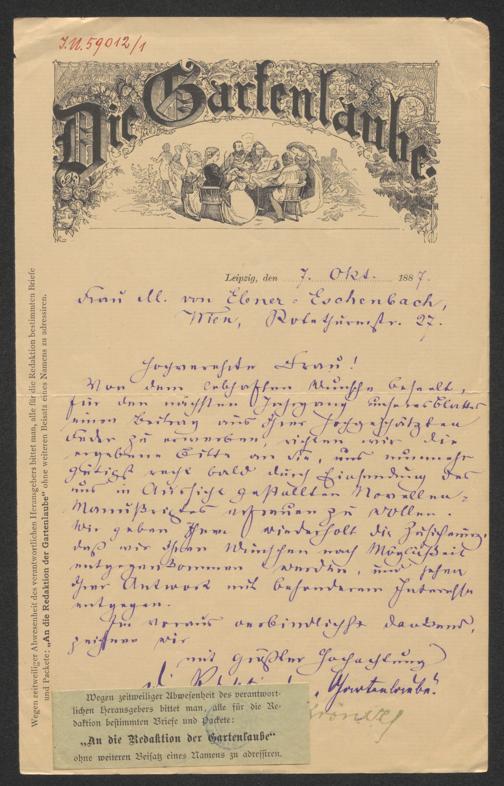 J.N. 59012/1
Die Gartenlaube.
Leipzig, den 7. Okt. 1887.
Frau M. von Ebner-Eschenbach,
Wien, Rotethurmstr. 27.
Hochverehrte Frau!
Von dem lebhaften Wunsche beseelt,
für den nächsten Jahrgang unseres Blattes
einen Beitrag aus Ihrer hochgeschätzten
Feder zu erwerben, richten wir die
ergebene Bitte an Sie, uns nunmehr
gütigst recht bald durch Einsendung des
uns in Aussicht gestellten Novellen-
Manuskriptes erfreuen zu wollen.
Wir geben Ihnen wiederholt die Zusicherung,
daß wir Ihren Wünschen nach Möglichkeit
entgegenkommen werden, und sehen
Ihrer Antwort mit besonderem Interesse
entgegen.
Im voraus verbindlichst dankend,
zeichnen wir
mit größter Hochachtung
"Gartenlaube".
Kröner
Wegen zeitweiliger Abwesenheit des verantwort-
lichen Herausgebers bittet man, alle für die Re-
daktion bestimmten Briefe und Packete:
„An die Redaktion der Gartenlaube“
ohne weiteren Beisatz eines Namens zu adressiren.
Wegen zeitweiliger Abwesenheit des verantwortlichen Herausgebers bittet man, alle für die Redaktion bestimmten Briefe
und Packete: „An die Redaktion der Gartenlaube“ ohne weiteren Beisatz eines Namens zu adressiren.